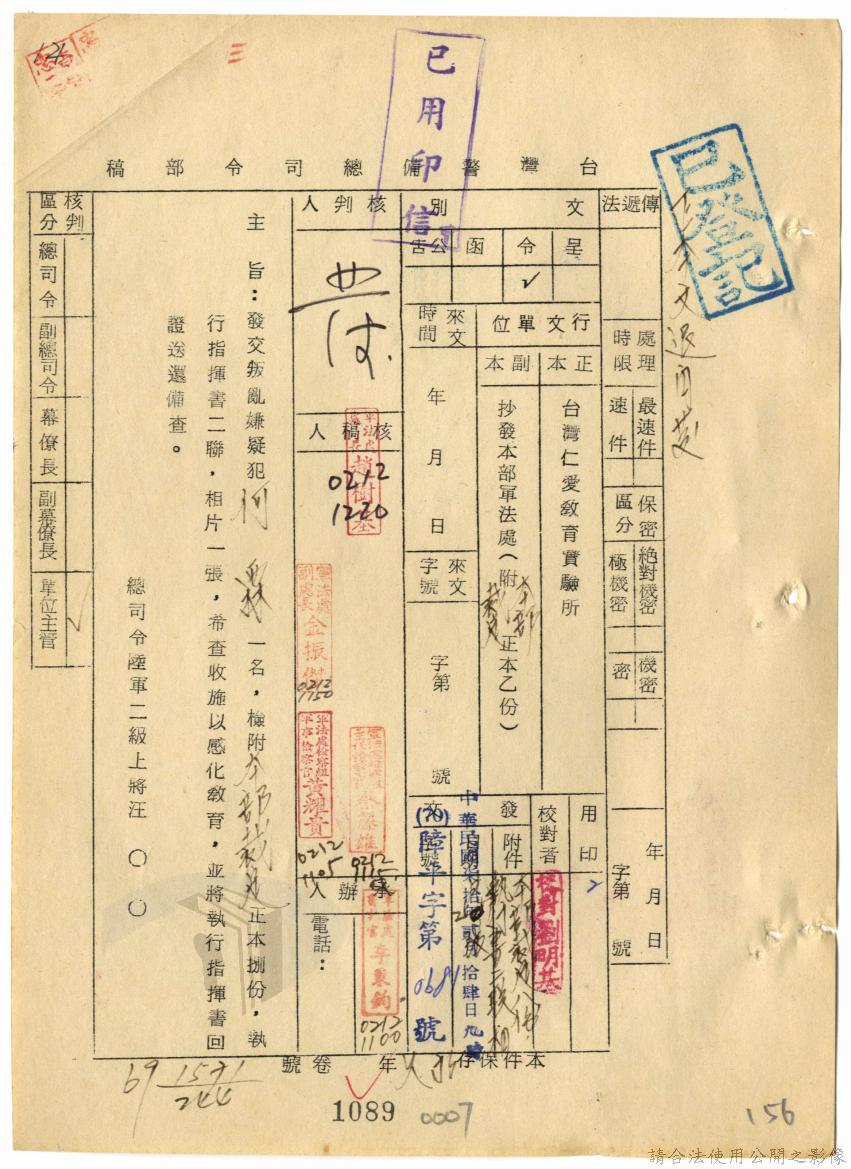 三
已用印信
已登記
台灣警備總司令部稿
傳遞法
處理時限
最速件
速件
保密區分
絕對機密
極機密
機密
密
年月日
字第號
文別
呈
令 ✓
函
公告
行文單位
正本
台灣仁愛教育實驗所
副本
抄發本部軍法處(附本部裁定正本乙份)
用印
校對者
校對劉明基
發文
附件
日期
字號
中華民國柒拾年貳月拾肆日
(70)障平字第0684號
來文時間
年月日
來文字號
字第
號
核判人
核稿人
軍法處處長趙樹基
0212
1220
軍法處副處長金振傑
0212
1150
軍法處檢察組軍事檢察官黃耀貴
0212
1105
0212
1115
承辦人
0212
1100
電話:
主旨:發交叛亂嫌疑犯何 一名,檢附本部裁定正本捌份,執
行指揮書二聯,相片一張,希查收施以感化教育,並將執行指揮書回
證送還備查。
總司令陸軍二級上將汪〇〇
核判區分
總司令
副總司令
幕僚長
副幕僚長
單位主管 ✓
本件保存 年
卷號
69 1571
244
1089
0007
156
請合法使用公開之影像